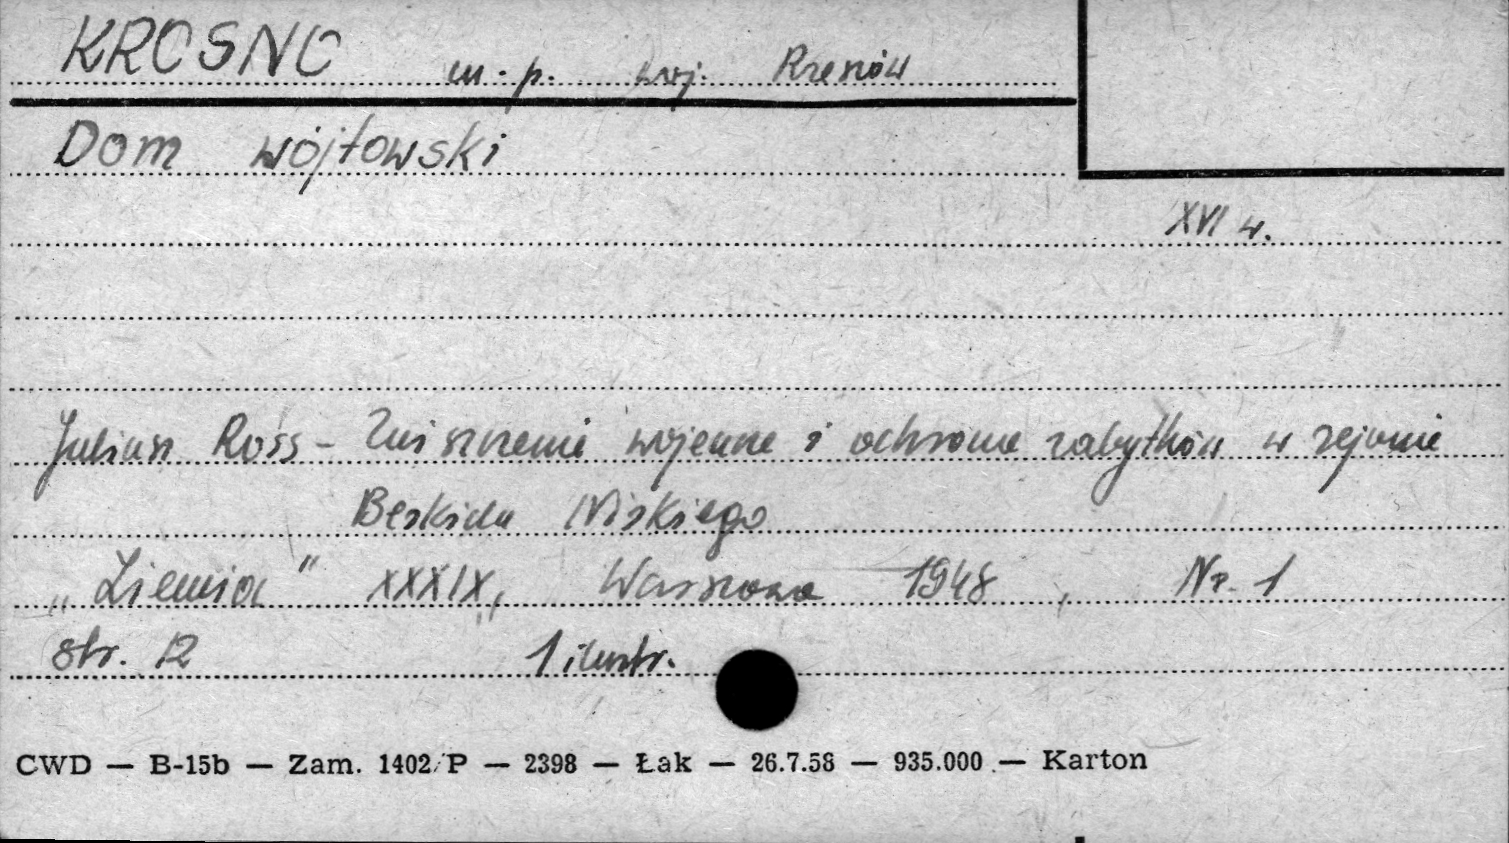 KROSNO m.p. woj. Rzeszów
Dom wójtowski
XVI w.
Juliusz Ross - Zniszczenie wojenne i ochrona zabytków w rejonie
Beskidu Niskiego
„Ziemia" XXXIX, Warszawa 1948, Nr. 1
str. 12 1 ilustr.
CWD — B-15b — Zam. 1402/P — 2398 — Łak — 26.7.58 — 935.000 — Karton